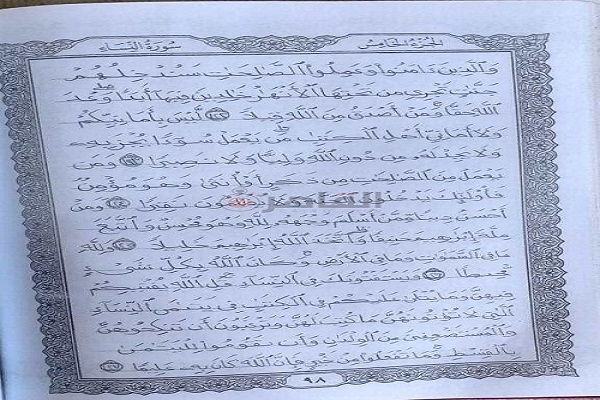 الجزء الخامس سورة النساء
والذين ءامنوا وعملوا الصلحت سندخلهم
جنت تجرى من تحتها الأنهر خلدين فيها أبدا وعد
الله حقا ومن أصدق من الله قيلا ليس بأمانيكم
ولا أمانى أهل الكتب من يعمل سوءا يجز به
ولا يجد له من دون الله وليا ولا نصيرا ومن
يعمل من الصلحت من ذكر أو أنثى وهو مؤمن
فأولئك نقيرا ومن
أحسن دينا ممن أسلم وجهه لله وهو محسن واتبع
ملة إبرهيم حنيفا واتخذ الله إبرهيم خليلا ولله
ما فى السموت وما فى الأرض وكان الله بكل شىء
محيطا ويستفتونك فى النساء قل الله يفتيكم
فيهن وما يتلى عليكم فى الكتب فى يتمى النساء
التى لا تؤتونهن ما كتب لهن وترغبون أن تنكحوهن
والمستضعفين من الولدن وأن تقوموا لليتمى
بالقسط وما تفعلوا من خير فإن الله كان به عليما
٩٨